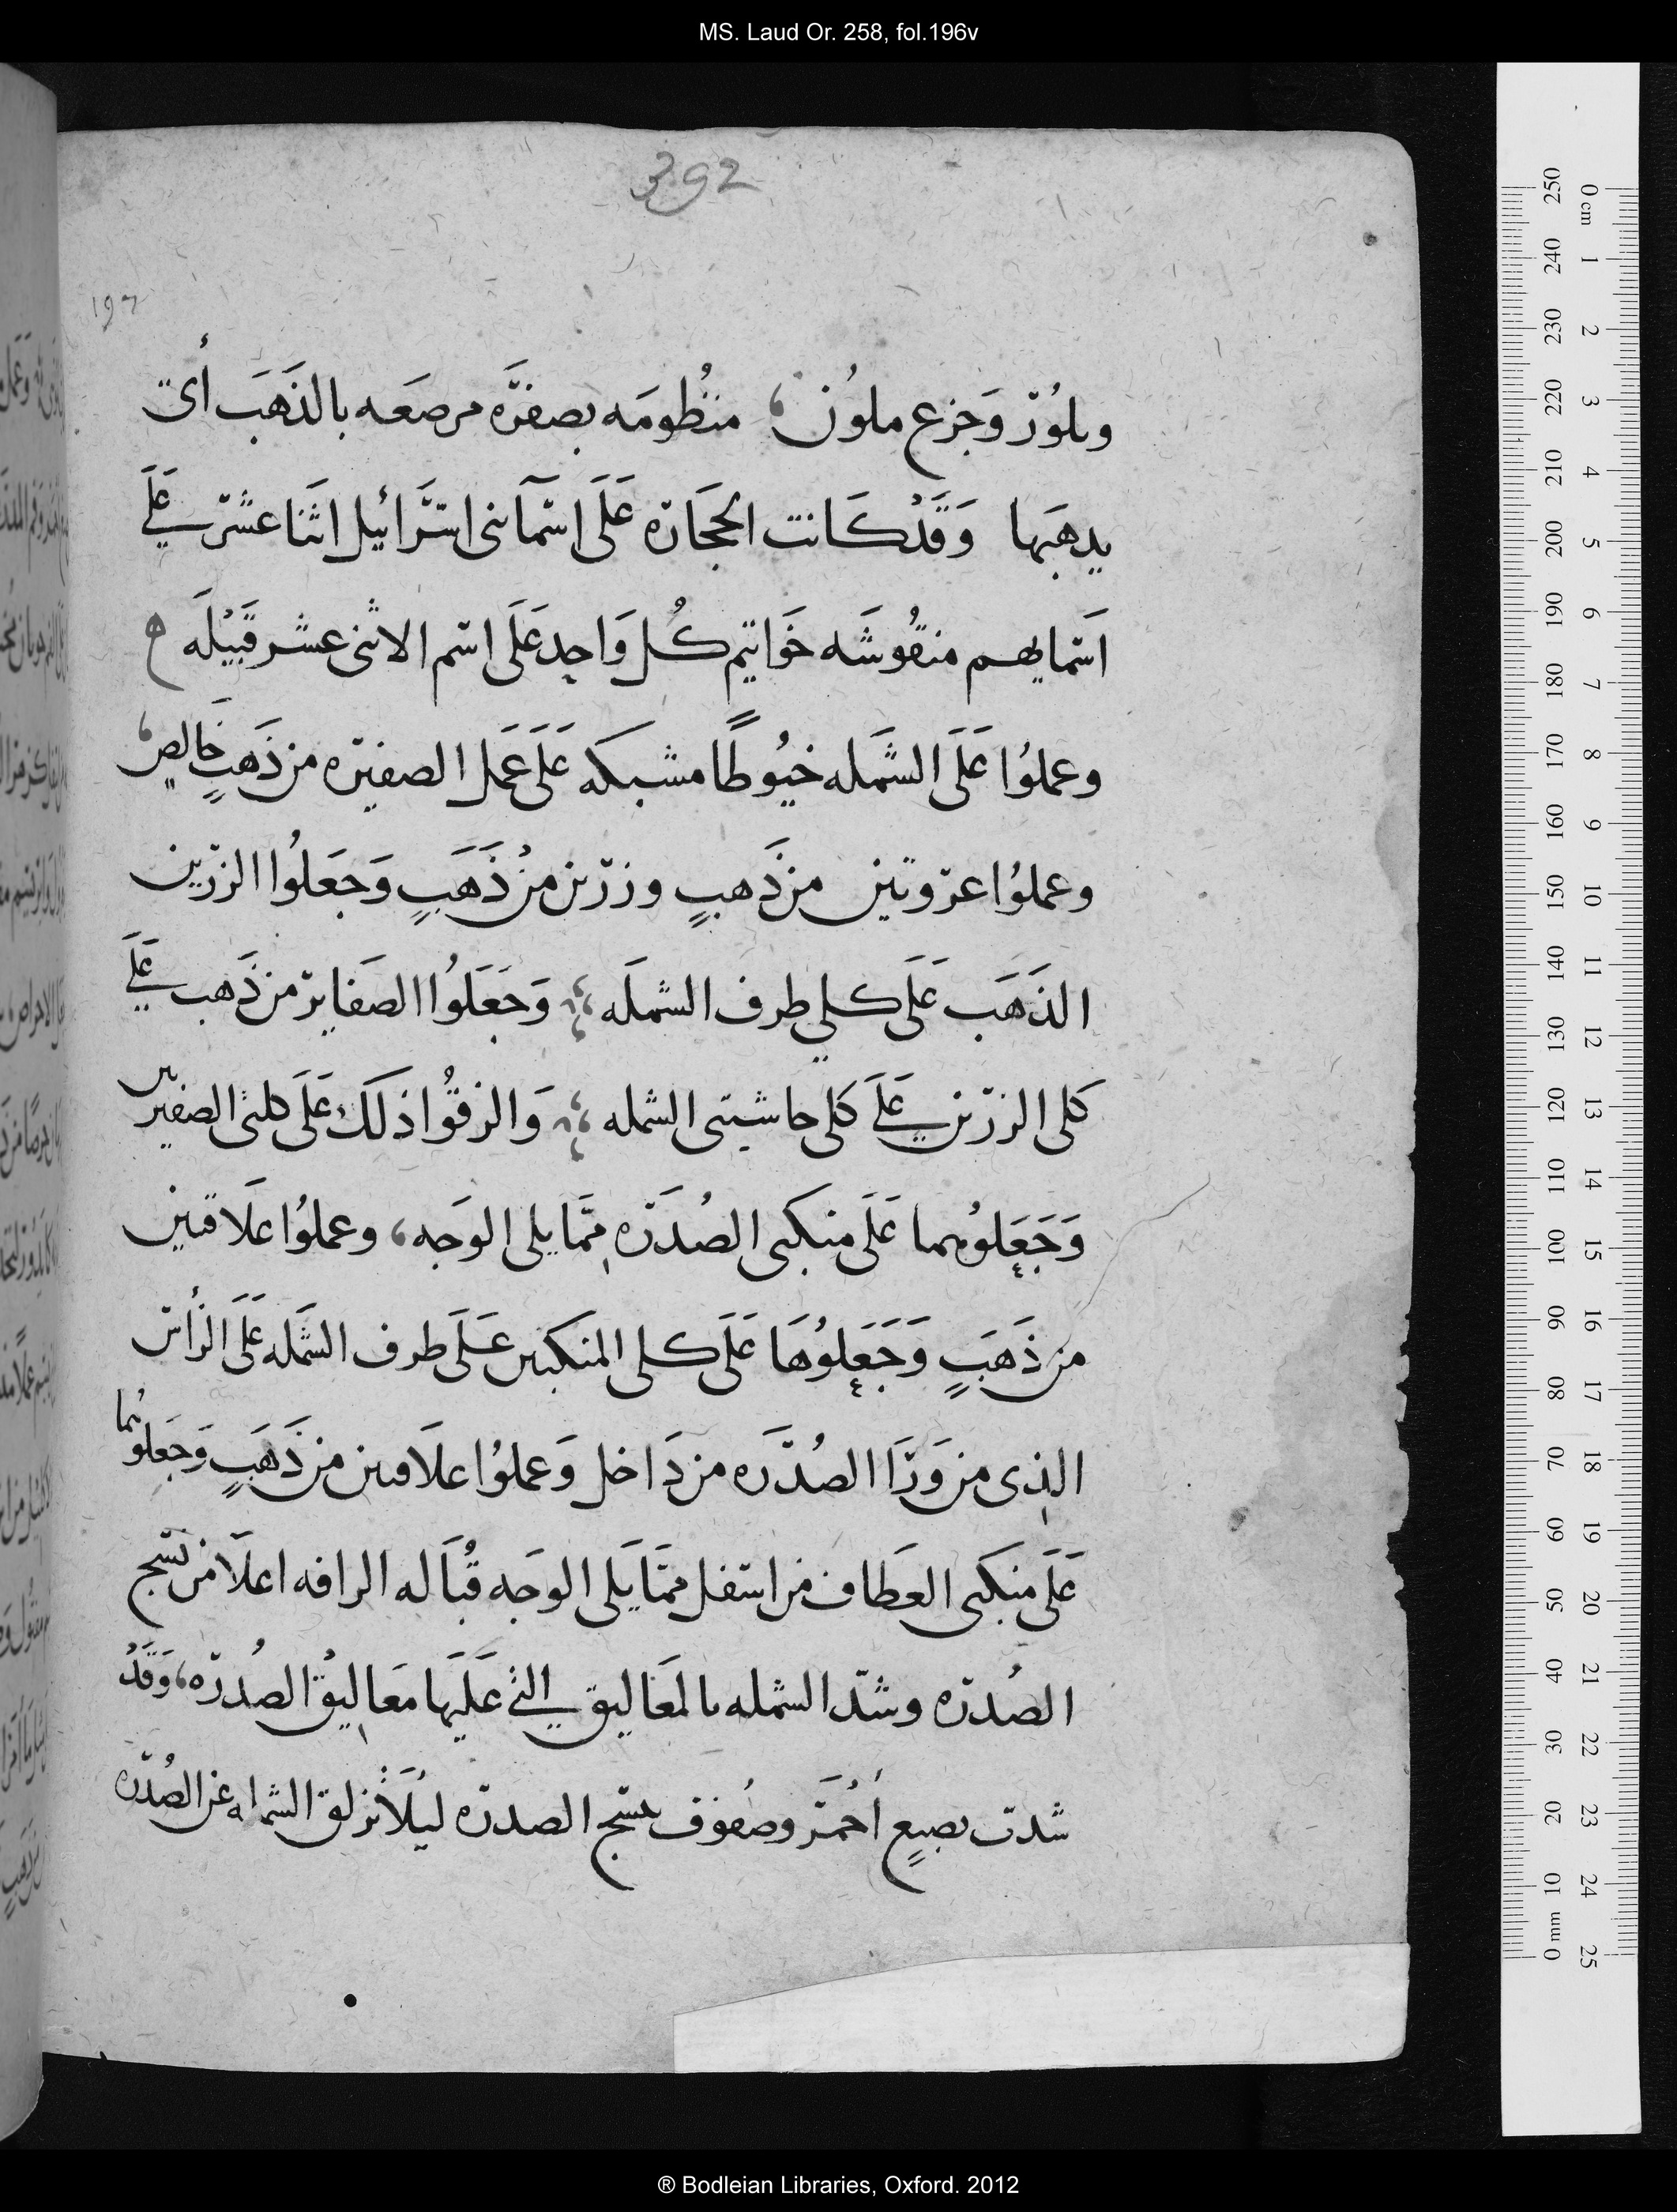 MS. Laud Or. 258, fol.196v
392
197
وبلُوُرّ وَجزع ملوُن، منظُومَه بصفرَّه مرصَعه بالذَهَب أىّ
يدهبَها وَقَدْ كَانت الحجَارَّه عَلَى اسّمآ بنى اسّرَائيل اثنا عشَرّ عَلَى
اَسّمايهم منقُوشَه خَواتِيم كُل وَاحِد عَلَى اسّم الاثنى عشر قَبيْلَه ه
وعملوُا عَلَى الشَمله خيُوطًا مشبكه عَلَى عَمَل الصفيرّه من ذَهَبٍ خَالصٍ،
وعملوُا عرّوتيَن من ذَهبٍ وزرّين منْ ذَهَبٍ وَجعَلوُا الزرّين
الذَهَب عَلَى كلي طرف الشملَه وَجَعَلوُا الصَفايرّ من ذَهب عَلَى
كلى الزرّين عَلَى كلى حاشيتى الشمله وَالزقوُا ذلكَ عَلَى كلتى الصفيرّتين
وَجَعَلوُهما عَلَى منكبى الصُدَرّه مِمَّا يلى الوَجه، وعملوُا علَاقَتين
من ذَهَبٍ وَجَعَلوُهَا عَلَى كلى المنكبين عَلَى طرف الشَمله عَلَى الرأسّ
الذِى من وَرَّا الصُدّرَه من دَاخل وَعملوُا علَاقتين من ذَهَبٍ وَجعَلوُهُما
عَلَى منكبَى العَطاف من اسّفل مِمَّا يَلى الوَجه قُبَاله الرافه اعلَا من نسّج
الصُدرّه وشدّ الشمله بالمَعَاليق التى عَلَيها مَعَاليِق الصُدرّه، وَقَدْ
شدتّ بصبغٍ أحْمَرّ وصُفوُف بنسّج الصدرّه ليْلَا تزلق الشمله عن الصُدرّه
250 240 230 220 210 200 190 180 170 160 150 140 130 120 110 100 90 80 70 60 50 40 30 20 10 0 mm
0 cm 1 2 3 4 5 6 7 8 9 10 11 12 13 14 15 16 17 18 19 20 21 22 23 24 25
® Bodleian Libraries, Oxford. 2012